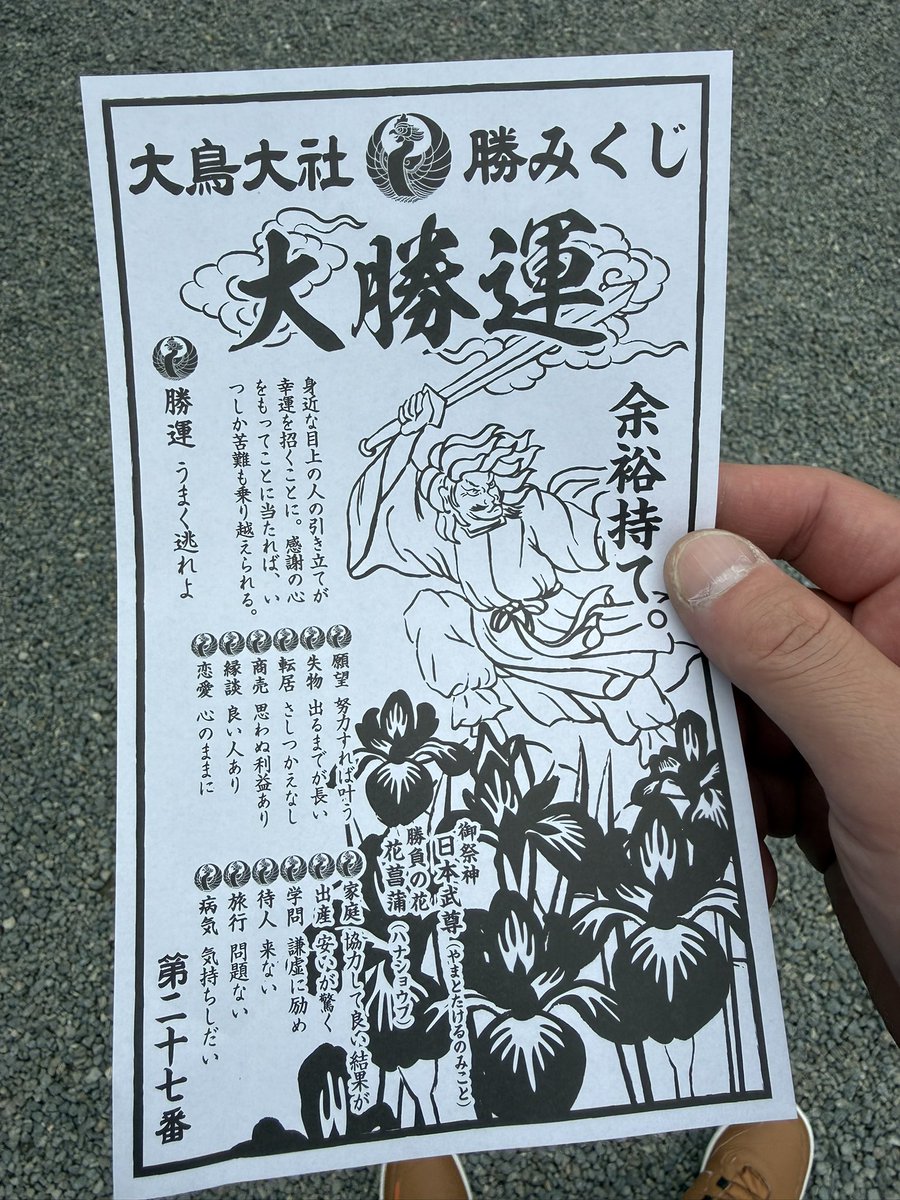 大鳥大社 勝みくじ
大勝運
余裕持て。
身近な目上の人の引き立てが
幸運を招くことに。感謝の心
をもってことに当たれば、い
つしか苦難も乗り越えられる。
勝運 うまく逃れよ
願望 努力すれば叶う
失物 出るまでが長い
転居 さしつかえなし
商売 思わぬ利益あり
縁談 良い人あり
恋愛 心のままに
御祭神
日本武尊(やまとたけるのみこと)
勝負の花
花菖蒲(ハナショウブ)
家庭 協力して良い結果が
出産 安いが驚く
学問 謙虚に励め
待人 来ない
旅行 問題ない
病気 気持ちしだい
第二十七番